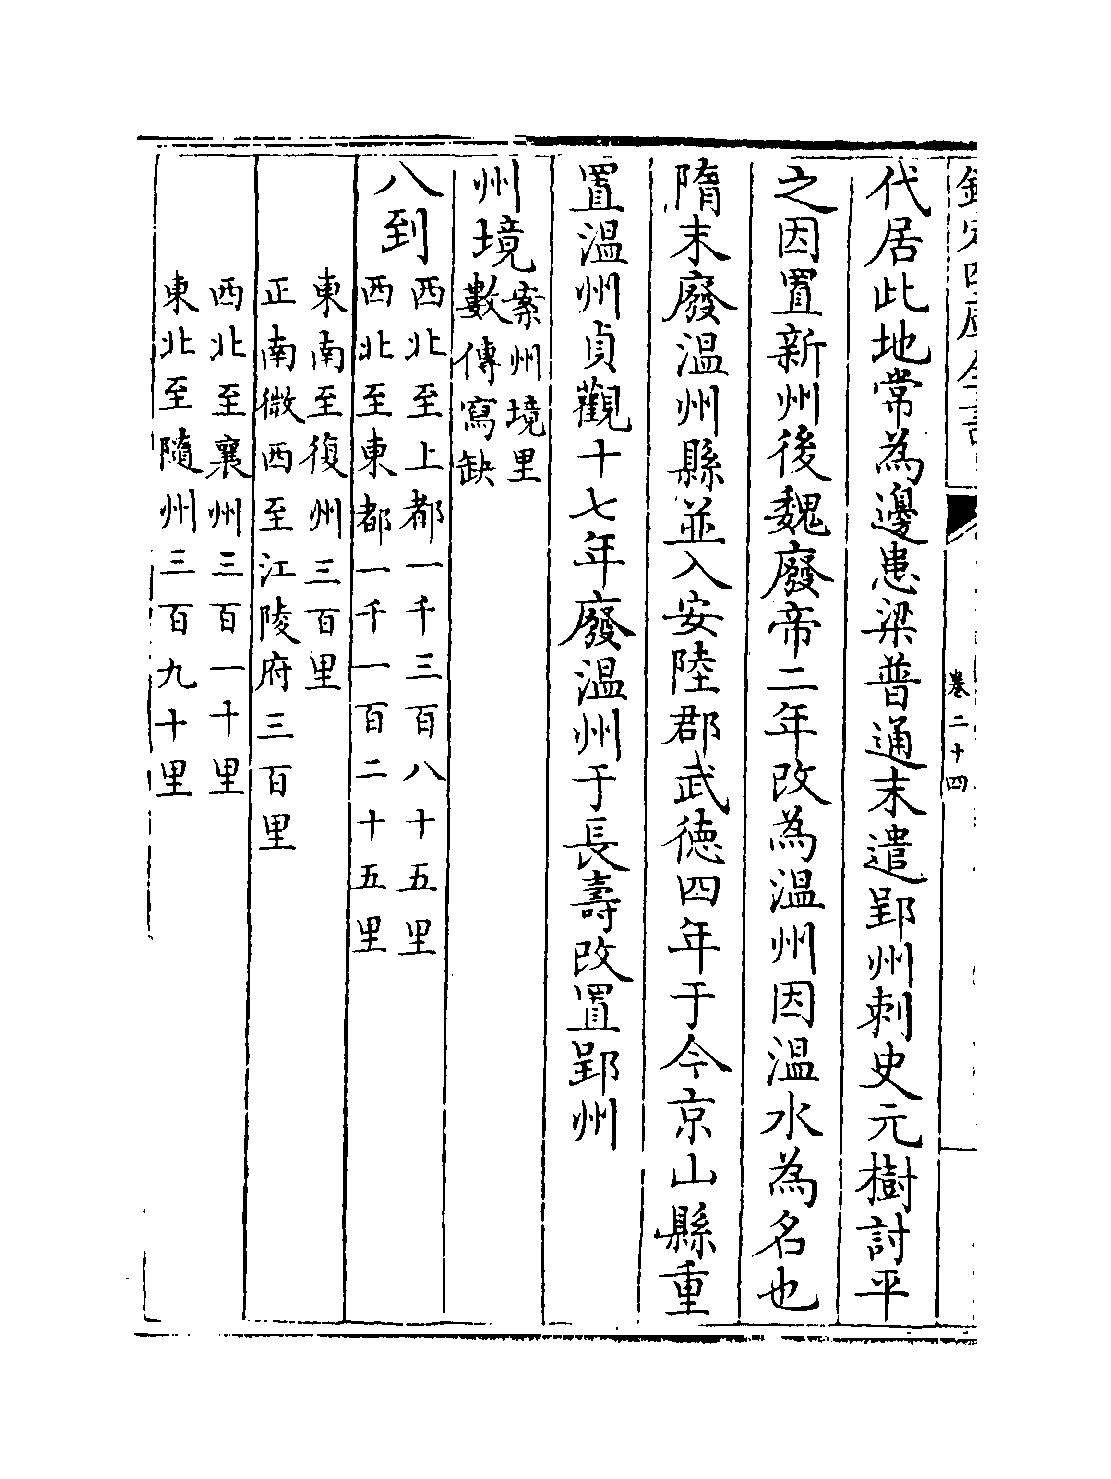 欽定四庫全書
卷二十四
代居此地常為邊患梁普通末遣郢州刺史元樹討平
之因置新州後魏廢帝二年改為溫州因溫水為名也
隋末廢溫州縣並入安陸郡武德四年于今京山縣重
置溫州貞觀十七年廢溫州于長壽改置郢州
州境案州境里
數傳寫缺
八到西北至上都一千三百八十五里
西北至東都一千一百二十五里
東南至復州三百里
正南微西至江陵府三百里
西北至襄州三百一十里
東北至隨州三百九十里